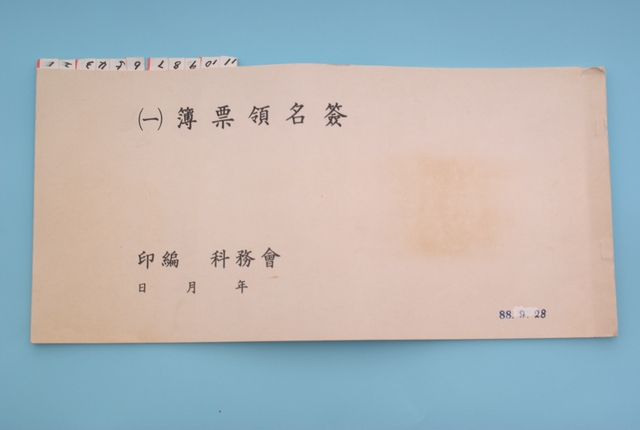 1 2 3 4 5 6 7 8 9 10 11
簽名領票簿㈠
會務科 編印
年 月 日
88. 9. 28